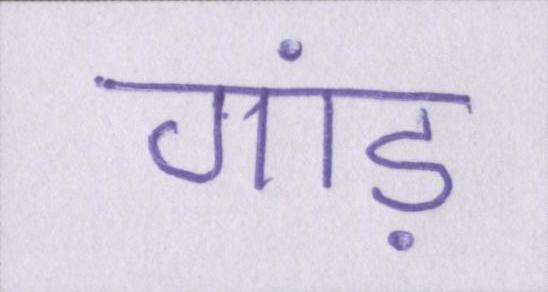 गांड़